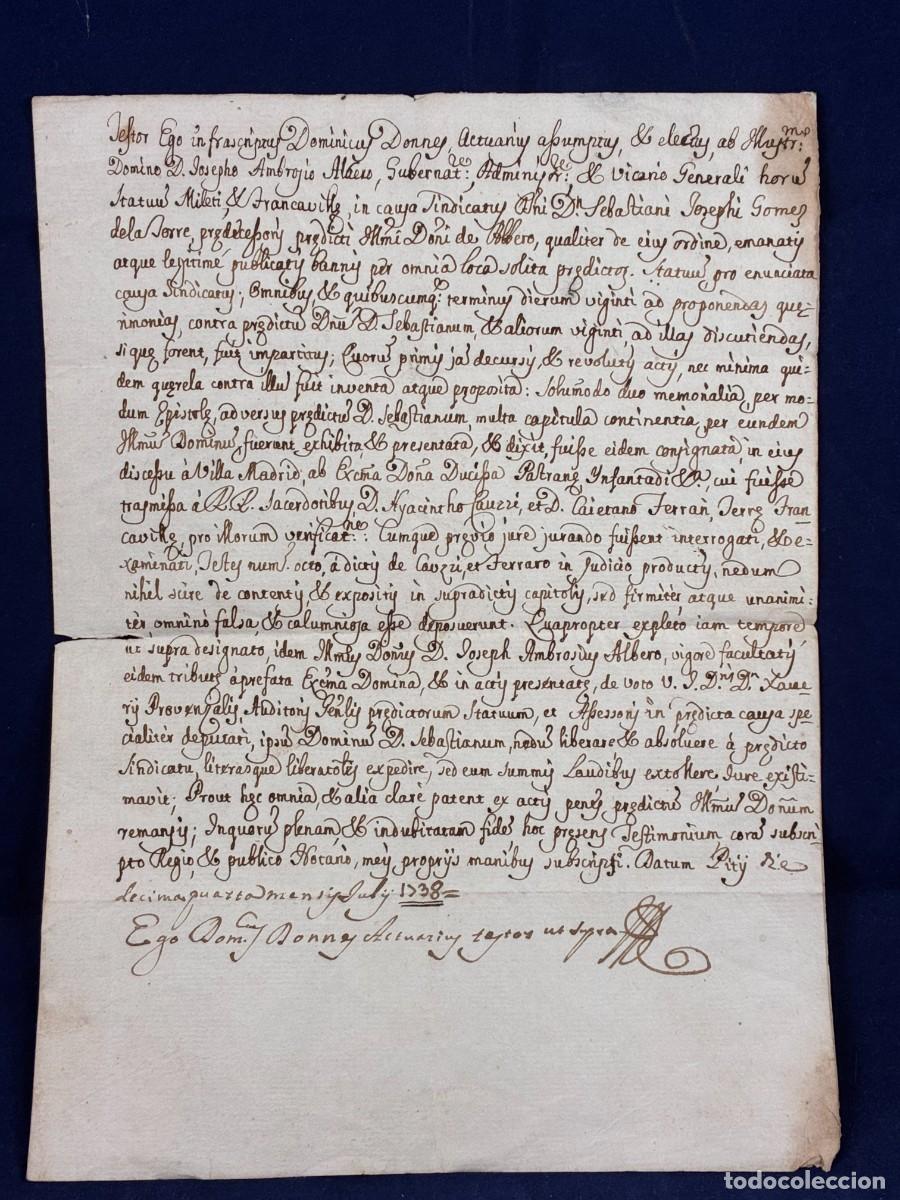 Testor Ego infrascriptus Dominicus Donnes, Actuarius assumptus, & electus, ab Illustr:mo
Domino D. Josepho Ambrosio Gubernat:e Administre: & Vicario Generali horu
Statuu Mileti, & Francavillę, in causa Sindicatus Dn Sebastiani Josephi Gomez
dela Torre, prędetessoris prędicti Illmi Dōni de Albero, qualiter de eius ordine, emanatis
atque legitimè publicatis bannis per omnia loca solita prędictor. Statuu pro enunciata
causa Sindicatus; Omnibus, & quibuscumq; terminus dierum viginti ad proponendas quę-
rimonias, contra prędictu Dnu D. Sebastianum, & aliorum viginti, ad illas discutiendas,
si quę forent, fuit impartitus; Quoru primis ja decursis, & revolutis actis, nec minima qui-
dem quęrela contra illu fuit inventa atque proposita: Solumodo duo memorialia, per mo-
dum Epistolę, adversus prędictu D. Sebastianum, multa capitula continentia, per eundem
Illmu Dominu fuerunt exhibita & presentata, & dixit, fuisse eidem consignata, in eius
discessu à Villa Madrid, ab Excma Doña Ducissa Pastranę, Infantadi &c. cui fuisse
trasmissa à R.R. Sacerdotibus, D. Hyacintho Cauzzi, et D. Caietano Ferrari, Terrę Fran-
cavillę, pro illorum verificat:ne: Cumque pręvio jure jurando fuissent interrogati, & e-
xaminati, Testes num. octo, à dictis de Cauzzi, et Ferraro in Judicio productis, nedum
nihil scire de contentis, & expositis in supradictis capitolis, sed firmiter atque unanimi-
tèr omninò falsa, & calumniosa esse deposuerunt. Quapropter expleto iam tempore
ut supra designato, idem Illmus Doñus D. Joseph Ambrosius Albero, vigore facultatis
eidem tributę à prefata Excma Domina, & in actis presentatę, de voto V.J.Dris Dn Xave-
rij Provenzalis, Auditoris Gēnlis prędictorum Statuum, et Assessoris in prędicta causa spe-
cialitèr deputati, ipsu Dominu D. Sebastianum, nedu liberare & absoluere à prędicto
Sindicatu, literasque liberatoles expedire, sed eum summis Laudibus extollere Iure existi-
mavit; Prout hęc omnia, & alia clarè patent ex actis penes prędictu Illmu Doñum
remansis; Inquoru plenam, & indubitatam fide hoc pręsens Testimonium cora subscri-
pto Regio, & publico Notario, meis proprijs manibus subscripsi. Datum Pitij Die
decima quarta mensis July 1738=
Ego Dom.cus Donnes Actuarius testor ut supra
todocoleccion